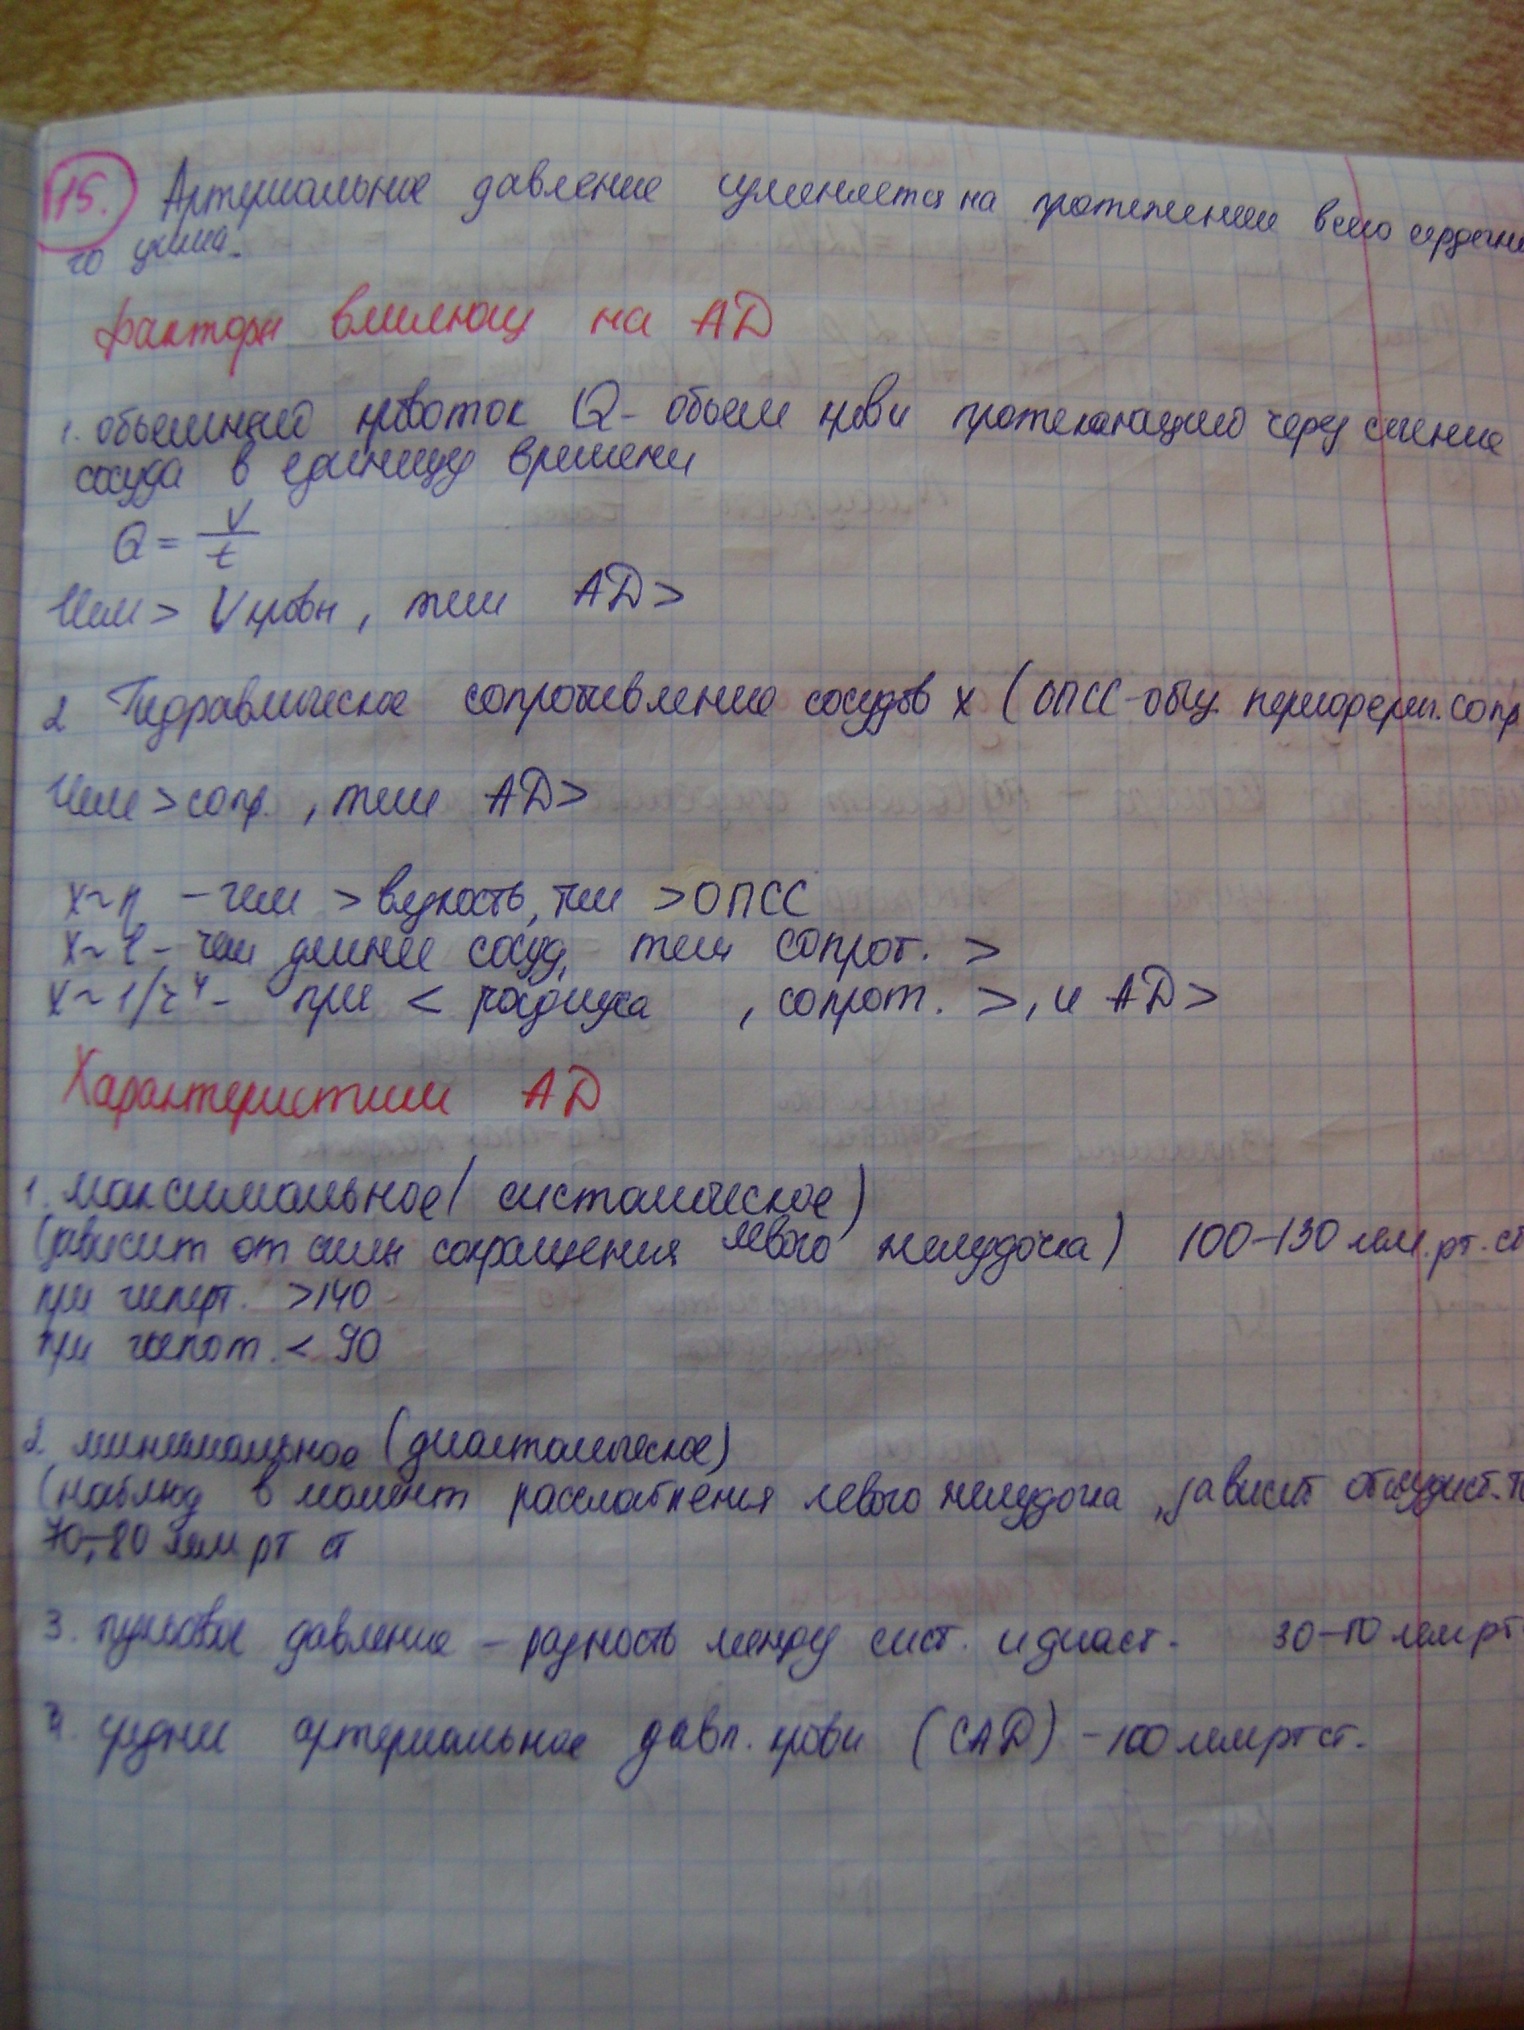 15. Артериальное давление изменяется на протяжении всего сердечно
го цикла.
факторы влияющ на АД
1. объемный кровоток Q - объем крови протекающего через сечение
сосуда в единицу времени
Q = V/t
Чем > V крови, тем АД >
2 Гидравлическое сопротивление сосудов х (ОПСС - общ. периферич. сопр
Чем > сопр., тем АД >
x~η - чем > вязкость, тем > ОПСС
x~l - чем длинее сосуд, тем сопрот. >
x~1/r⁴ - при < радиуса , сопрот. >, и АД >
Характеристики АД
1. максимальное (систолическое)
(зависит от силы сокращения левого желудочка) 100-130 мм.рт.ст
при гиперт. >140
при гипот. < 90
2. минимальное (диастолическое)
(наблюд в момент расслабления левого желудочка, зависит от сосудист. т
70-80 мм рт ст
3. пульсовое давление - разность между сист. и диаст. 30-50 мм рт
4. средни артериальное давл. крови (САД) - 100 мм рт ст.